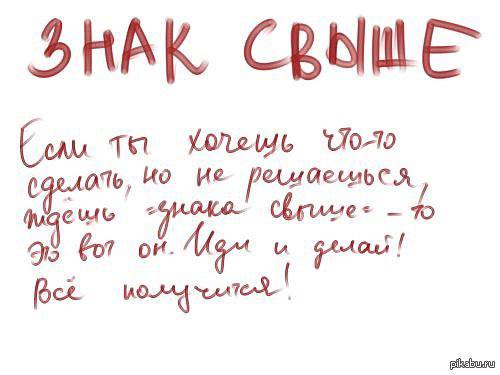 ЗНАК СВЫШЕ
Если ты хочешь что-то
сделать, но не решаешься,
ждёшь "знака свыше" - то
Это вот он. Иди и делай!
Всё получится!
pikabu.ru